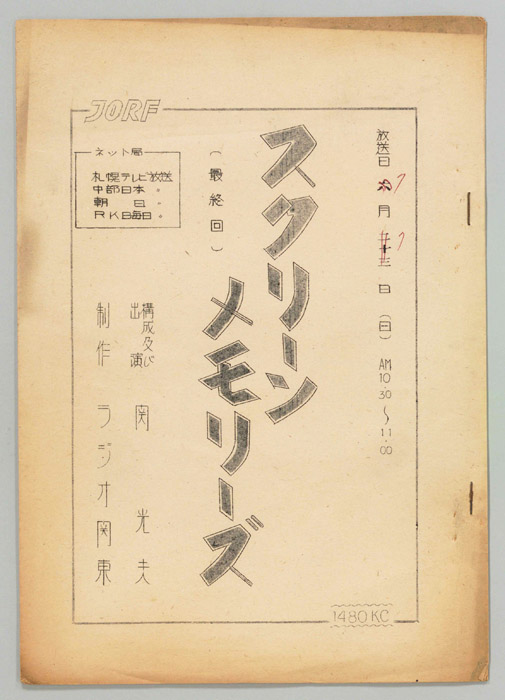 JORF
放送日 7月 7日(日) AM 10.30〜11.00
スクリーン
メモリーズ
(最終回)
ネット局
札幌テレビ放送
中部日本 〃
朝 日 〃
RKB毎日 〃
構成及び
出演 関 光夫
制作 ラジオ関東
1480KC